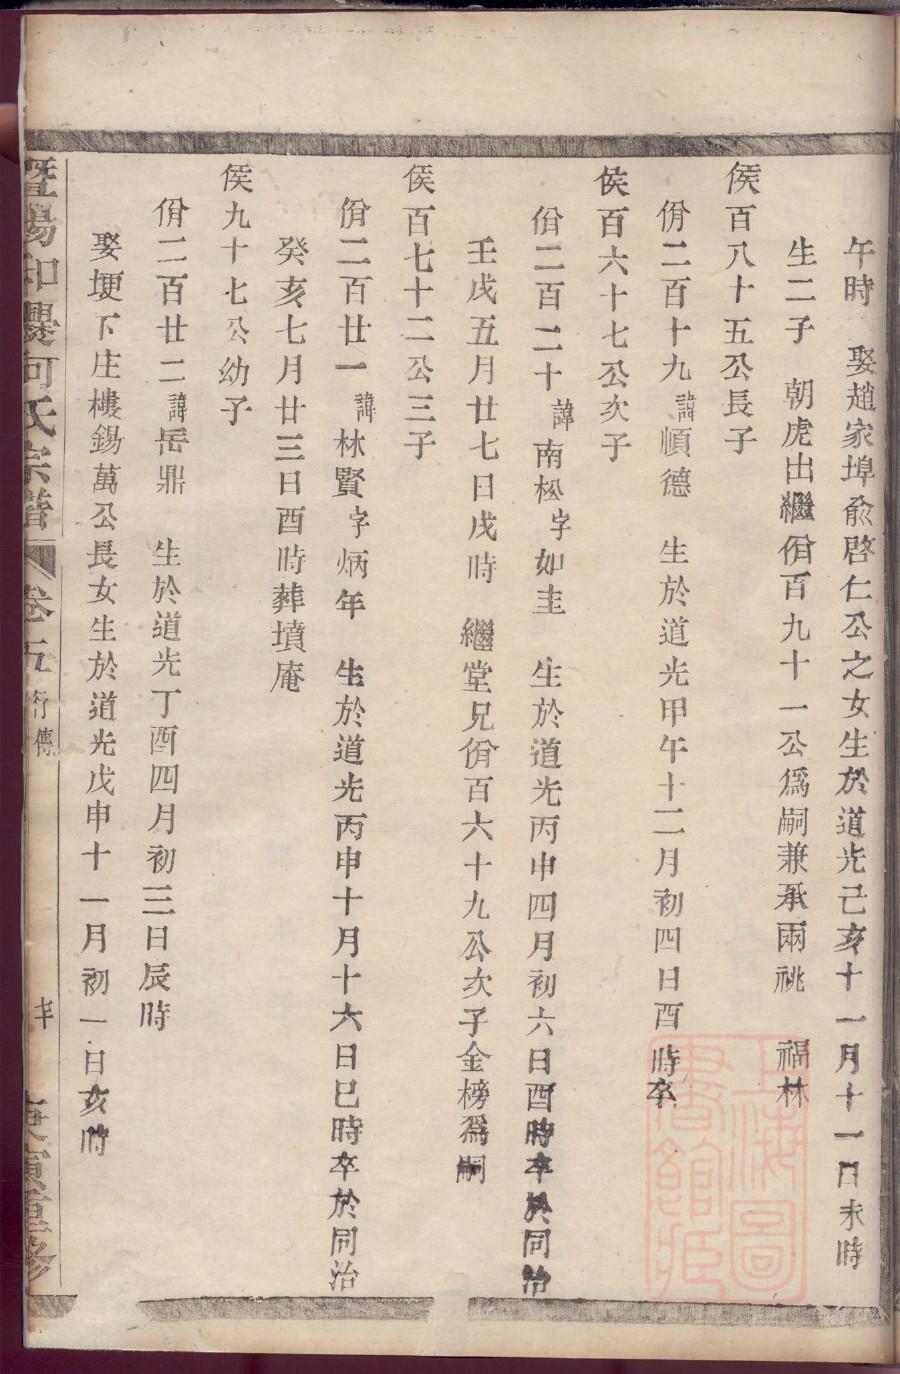 午時　娶趙家埠俞啓仁公之女生於道光己亥十一月十一日未時
生二子　朝虎出繼佾百九十一公爲嗣兼承兩祧　福林
侯百八十五公長子
佾二百十九諱順德　生於道光甲午十二月初四日酉時卒
侯百六十七公次子
佾二百二十諱南松字如圭　生於道光丙申四月初六日酉時卒於同治
壬戌五月廿七日戌時　繼堂兄佾百六十九公次子金榜爲嗣
侯百七十二公三子
佾二百廿一諱林賢字炳年　生於道光丙申十月十六日巳時卒於同治
癸亥七月廿三日酉時葬墳庵
侯九十七公幼子
佾二百廿二諱岳鼎　生於道光丁酉四月初三日辰時
娶埂下庄樓錫萬公長女生於道光戊申十一月初一日亥時
暨陽和瓔何氏宗譜　卷五　行傳
庚寅重修
上海圖書館藏